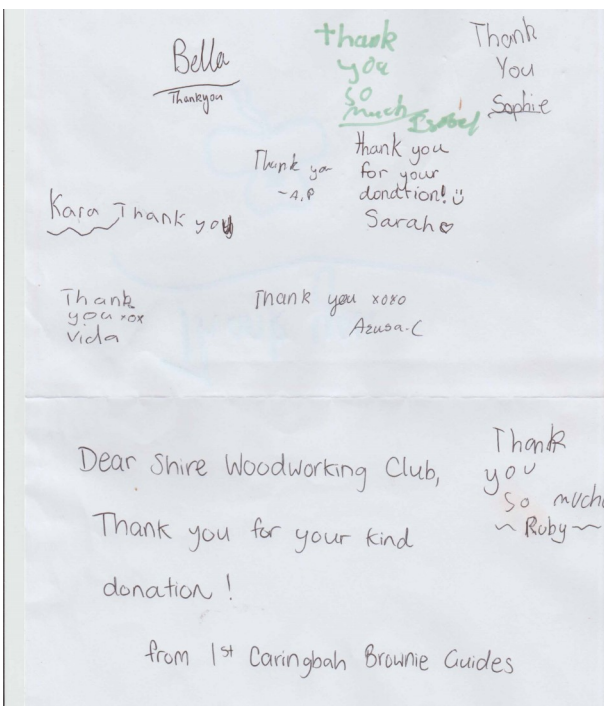 Bella
Thankyou
thank
you
so
much Isobel
Thank
You
Sophie
Thank you
~A.P
thank you
for your
donation!
Sarah
Kara Thank you
Thank
you xox
Vida
Thank you xoxo
Azusa-C
Dear Shire Woodworking Club,
Thank you for your kind
donation!
from 1st Caringbah Brownie Guides
Thank
you
so much
~ Ruby ~